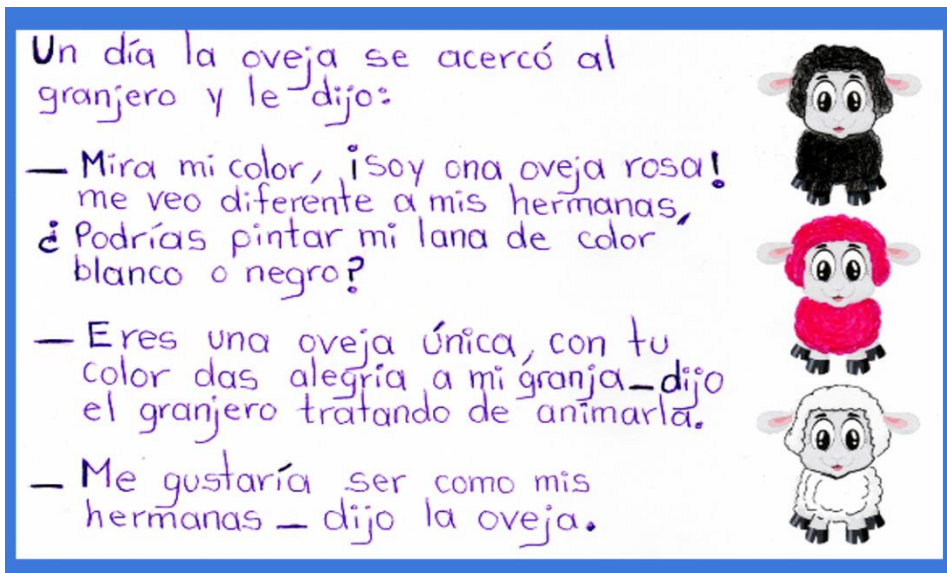 Un día la oveja se acercó al
granjero y le dijo:
— Mira mi color, ¡soy una oveja rosa!
me veo diferente a mis hermanas,
¿Podrías pintar mi lana de color
blanco o negro?
— Eres una oveja única, con tu
color das alegría a mi granja—dijo
el granjero tratando de animarla.
— Me gustaría ser como mis
hermanas — dijo la oveja.